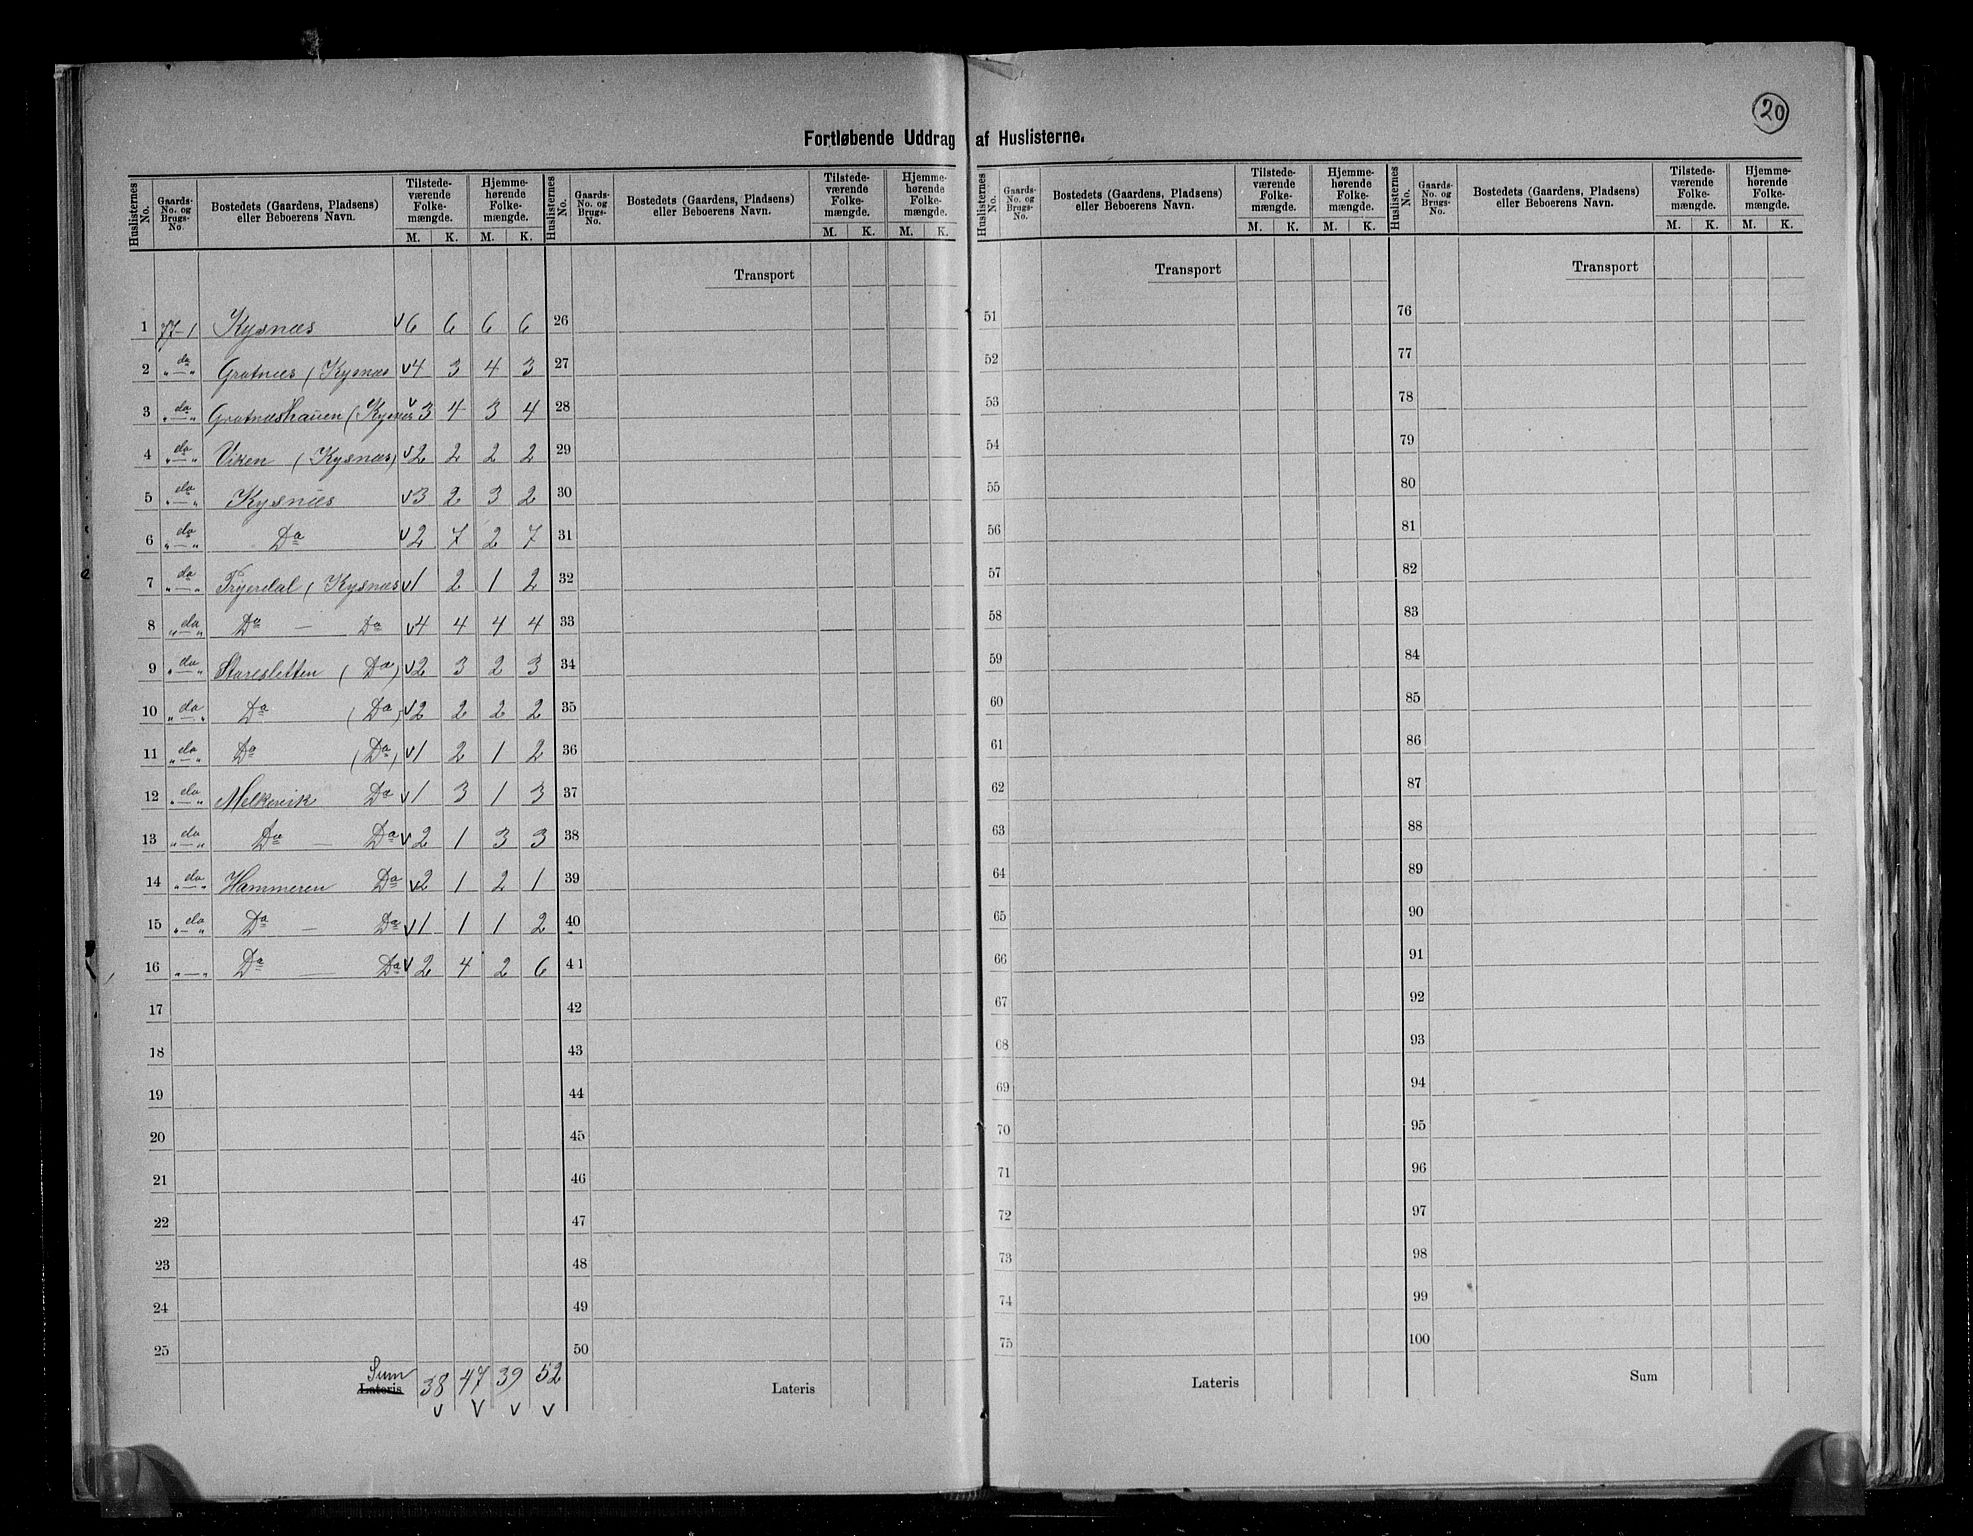 20
Fortløbende Uddrag af Huslisterne.
Huslisternes No. Gaards-No. og Brugs-No. Bostedets (Gaardens, Pladsens) eller Beboerens Navn. Tilstedeværende Folkemængde. M. K. Hjemmehørende Folkemængde. M. K.
Huslisternes No. Gaards-No. og Brugs-No. Bostedets (Gaardens, Pladsens) eller Beboerens Navn. Tilstedeværende Folkemængde. M. K. Hjemmehørende Folkemængde. M. K.
Huslisternes No. Gaards-No. og Brugs-No. Bostedets (Gaardens, Pladsens) eller Beboerens Navn. Tilstedeværende Folkemængde. M. K. Hjemmehørende Folkemængde. M. K.
Huslisternes No. Gaards-No. og Brugs-No. Bostedets (Gaardens, Pladsens) eller Beboerens Navn. Tilstedeværende Folkemængde. M. K. Hjemmehørende Folkemængde. M. K.
1 77-1 Kysnæs v6 6 6 6
2 „ do „ Gratnæs (Kysnæs v4 3 4 3
3 „ do „ Gratnæshauen (Kysnæs v3 4 3 4
4 „ do „ Viken (Kysnæs) v2 2 2 2
5 „ do „ Kysnæs v3 2 3 2
6 „ do „ Do v2 7 2 7
7 „ do „ (Kysnæs v1 2 1 2
8 „ do „ Do — Do v4 4 4 4
9 „ do „ Staresletten (Do) v2 3 2 3
10 „ do „ Do (Do) v2 2 2 2
11 „ do „ Do (Do) v1 2 1 2
12 „ do „ Melkevik Do v1 3 1 3
13 „ do „ Do — Do v2 1 3 3
14 „ do „ Hammeren Do v2 1 2 1
15 „ do „ Do — Do v1 1 1 2
16 „ — „ Do — Do v2 4 2 6
17
18
19
20
21
22
23
24
25
Sum Lateris 38 47 39 52
v v v v
Transport
26
27
28
29
30
31
32
33
34
35
36
37
38
39
40
41
42
43
44
45
46
47
48
49
50
Lateris
Transport
51
52
53
54
55
56
57
58
59
60
61
62
63
64
65
66
67
68
69
70
71
72
73
74
75
Lateris
Transport
76
77
78
79
80
81
82
83
84
85
86
87
88
89
90
91
92
93
94
95
96
97
98
99
100
Sum